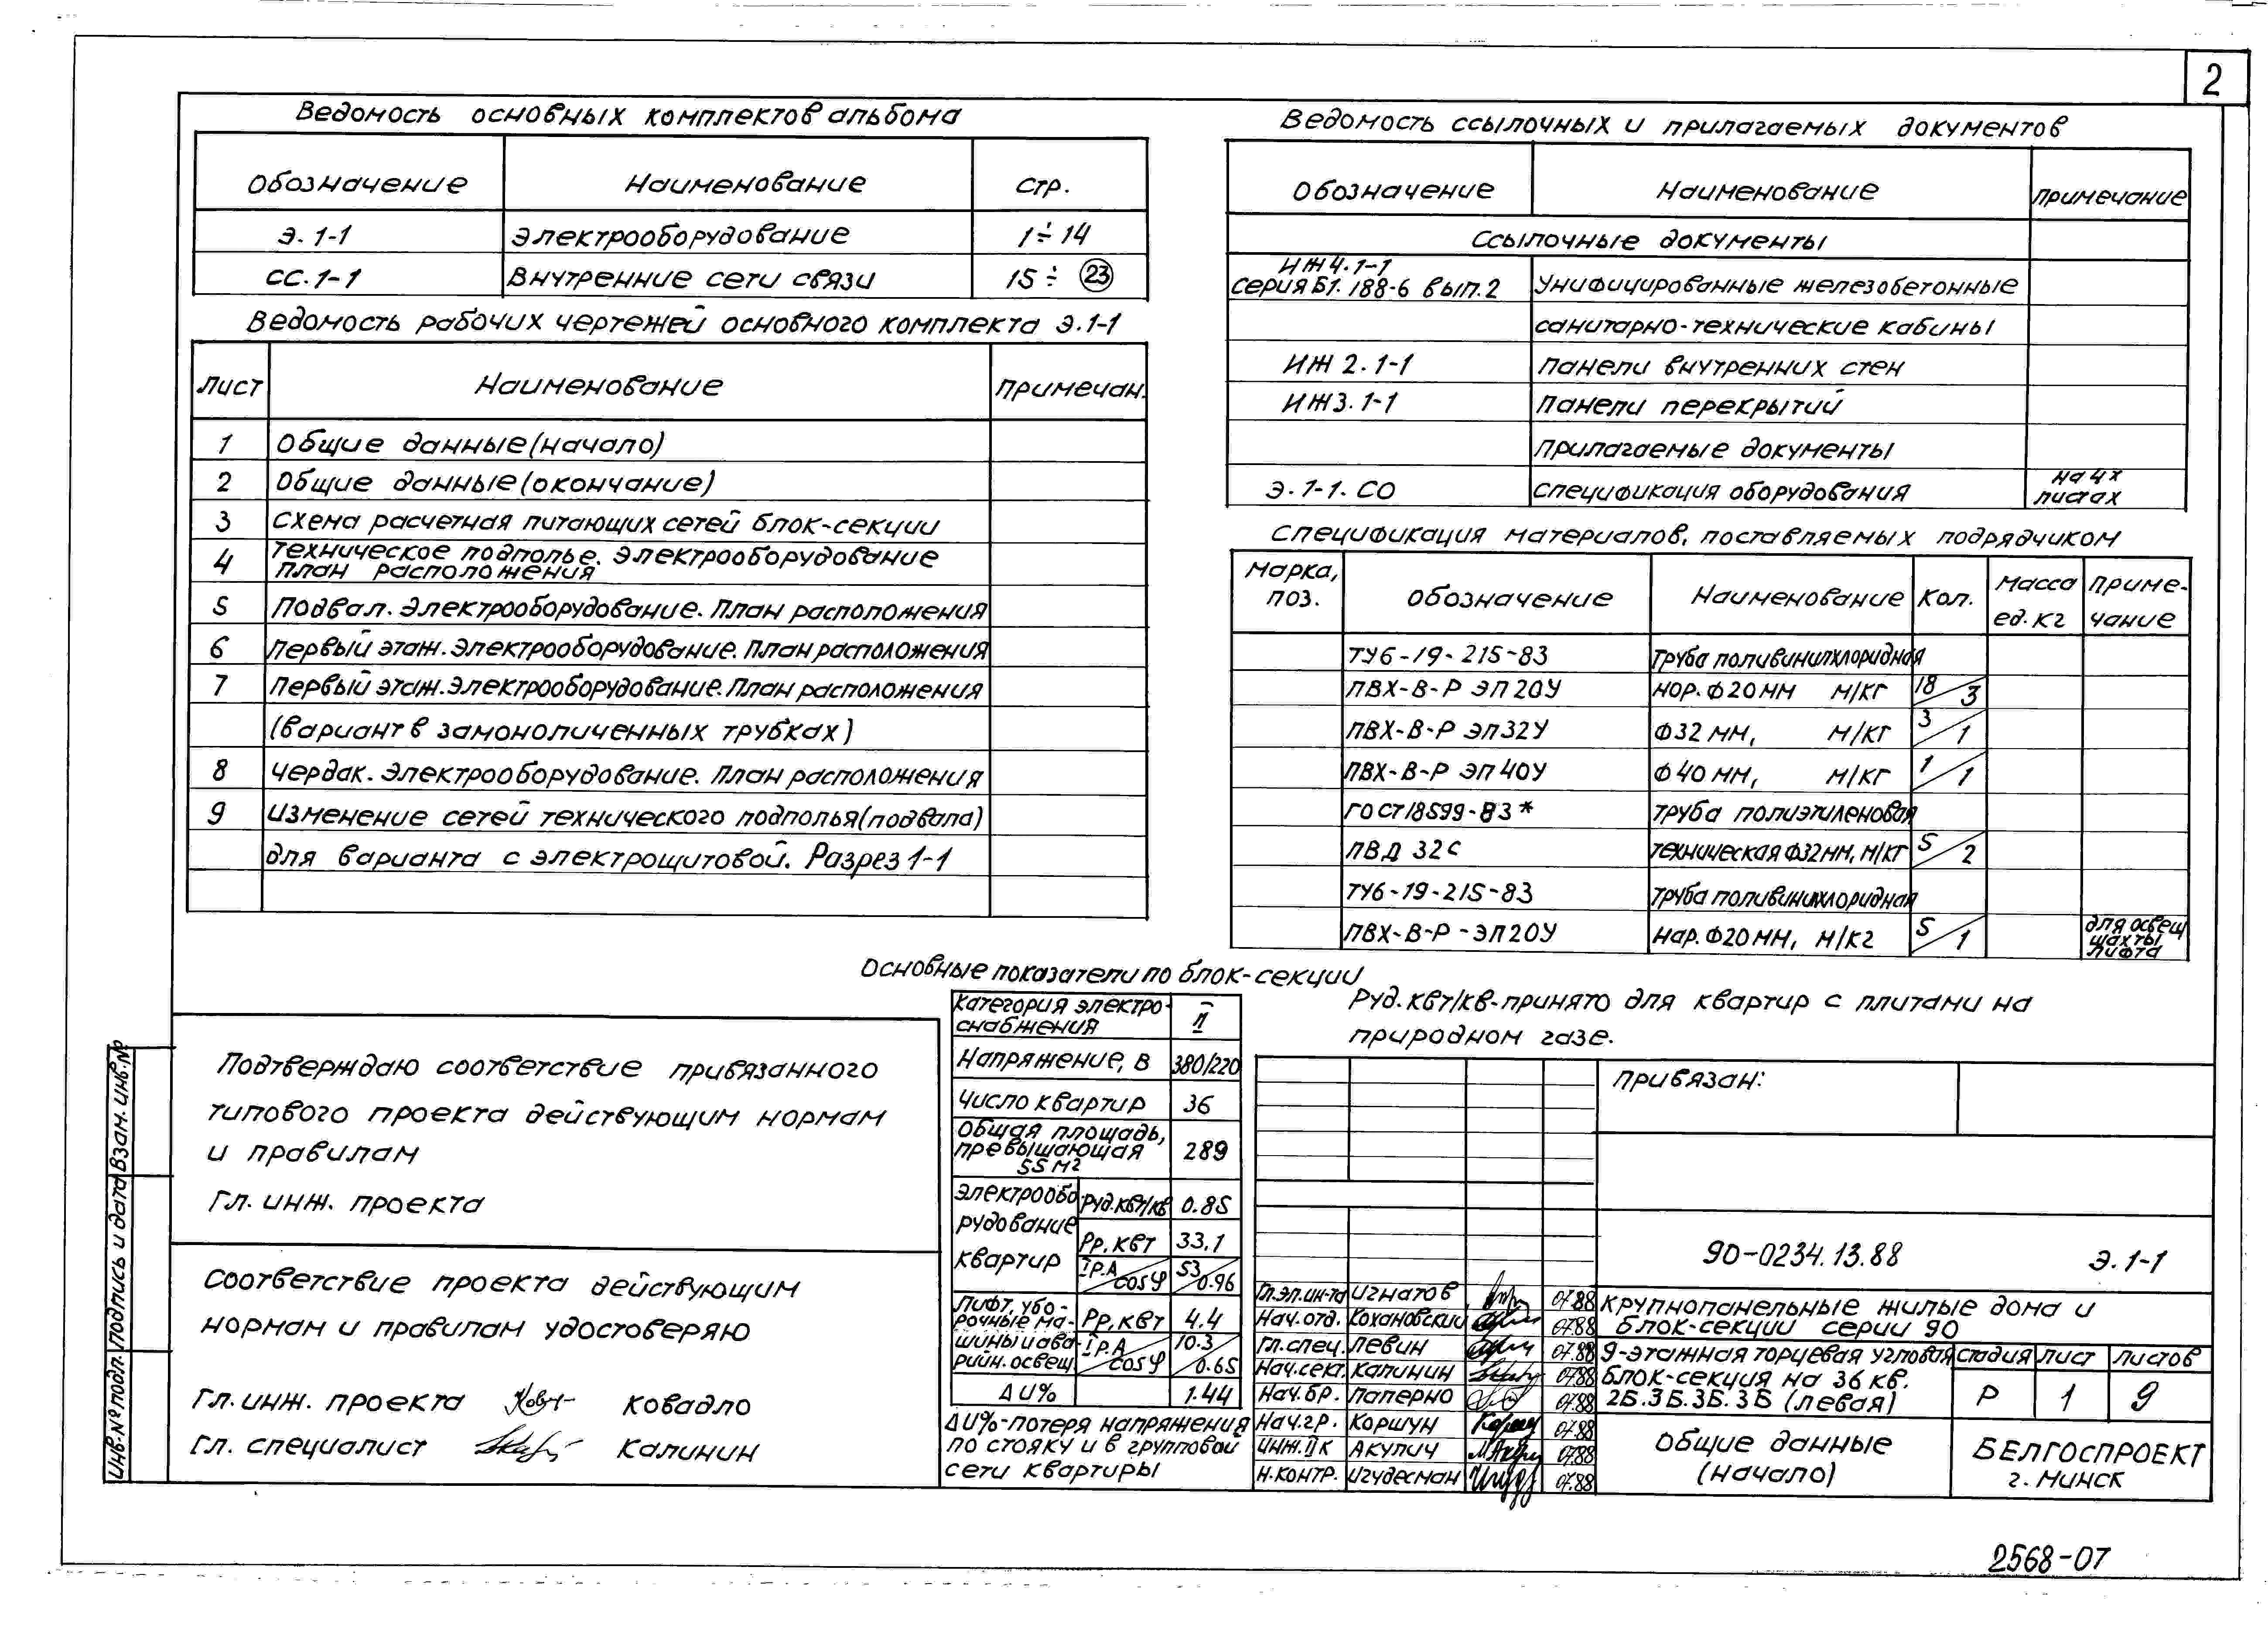 2
Ведомость основных комплектов альбома
Обозначение Наименование стр.
Э.1-1 Электрооборудование 1÷14
СС.1-1 Внутренние сети связи 15÷23
Ведомость рабочих чертежей основного комплекта Э.1-1
Лист Наименование Примечан.
1 Общие данные (начало)
2 Общие данные (окончание)
3 Схема расчетная питающих сетей блок-секции
4 Техническое подполье. Электрооборудование
План расположения
5 Подвал. Электрооборудование. План расположения
6 Первый этаж. Электрооборудование. План расположения
7 Первый этаж. Электрооборудование. План расположения
(вариант в замоноличенных трубках)
8 Чердак. Электрооборудование. План расположения
9 Изменение сетей технического подполья (подвала)
для варианта с электрощитовой. Разрез 1-1
Ведомость ссылочных и прилагаемых документов
Обозначение Наименование Примечание
Ссылочные документы
ИЖ4.1-1
серия Б1.188-6 вып.2 Унифицированные железобетонные
санитарно-технические кабины
ИЖ 2.1-1 Панели внутренних стен
ИЖ3.1-1 Панели перекрытий
Прилагаемые документы
Э.1-1.СО Спецификация оборудования на 4х
листах
Спецификация материалов, поставляемых подрядчиком
Марка, поз. Обозначение Наименование Кол. Масса ед. кг Приме-
чание
ТУ6-19-215-83 Труба поливинилхлоридная
ПВХ-В-Р ЭП20У нар. Ф20мм м/кг 18/3
ПВХ-В-Р ЭП32У Ф32мм, м/кг 3/1
ПВХ-В-Р ЭП40У Ф40мм, м/кг 1/1
ГОСТ18599-83* Труба полиэтиленовая
ПВД 32С техническая Ф32мм, м/кг 5/2
ТУ6-19-215-83 Труба поливинилхлоридная
ПВХ-В-Р-ЭП20У нар. Ф20мм, м/кг 5/1 для освещ
шахты
лифта
Основные показатели по блок-секции
Категория электро-
снабжения II
Напряжение, в 380/220
Число квартир 36
Общая площадь,
превышающая
55м2 289
Электрообо-
рудование
квартир
Руд.квт/кв 0.85
Рр, квт 33.1
Iр.А/cosφ 53/0.96
Лифт, убо-
рочные ма-
шины и ава-
рийн. освещ.
Рр, квт 4.4
Iр.А/cosφ 10.3/0.65
ΔU% 1.44
ΔU%-потеря напряжения
по стояку и в групповой
сети квартиры
Руд.квт/кв-принято для квартир с плитами на
природном газе.
Подтверждаю соответствие привязанного
типового проекта действующим нормам
и правилам
Гл. инж. проекта
Соответствие проекта действующим
нормам и правилам удостоверяю
Гл. инж. проекта Ковадло
Гл. специалист Калинин
Инв.№подл. Подпись и дата Взам.инв.№
Привязан:
90-0234.13.88 Э.1-1
Гл.эл.ин-та Игнатов 07.88
Нач.отд. Кохановский 07.88
Гл.спец. Левин 07.88
Нач.сект. Калинин 07.88
Нач.бр. Паперно 07.88
Нач.гр. Коршун 07.88
Инж. IIк Акулич 07.88
Н.контр. Игудесман 07.88
Крупнопанельные жилые дома и
блок-секции серии 90
9-этажная торцевая угловая
блок-секция на 36 кв.
2Б.3Б.3Б.3Б (левая)
стадия лист листов
Р 1 9
Общие данные
(начало)
БЕЛГОСПРОЕКТ
г. Минск
2568-07